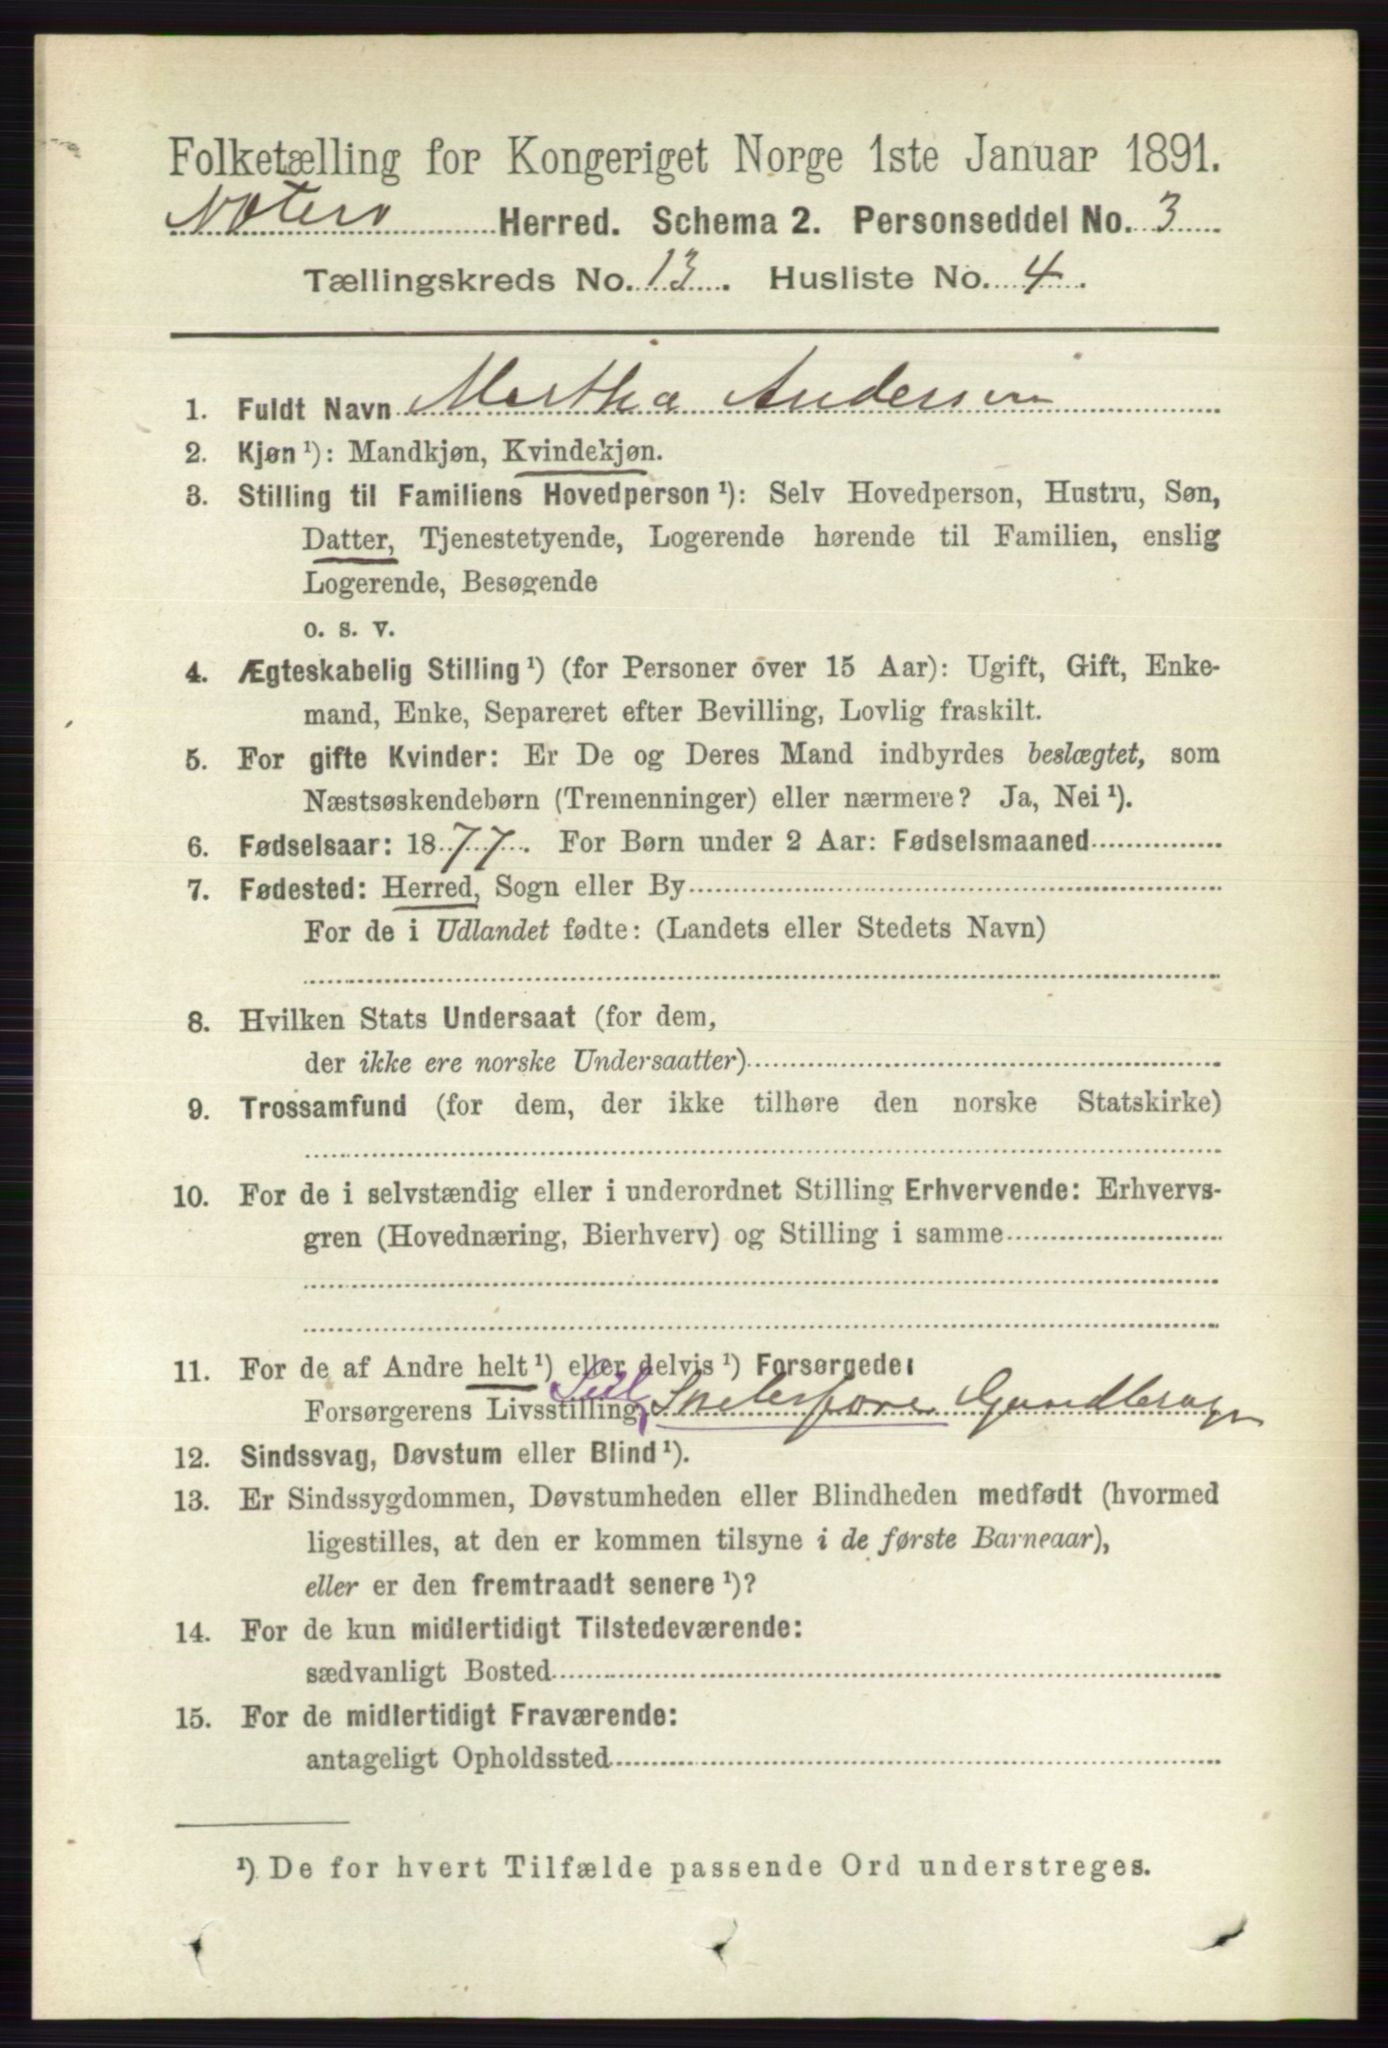 Folketælling for Kongeriget Norge 1ste Januar 1891.
Nøterø Herred. Schema 2. Personseddel No. 3
Tællingskreds No. 13. Husliste No. 4.
1. Fuldt Navn Marthia Andersen
2. Kjøn ¹): Mandkjøn, Kvindekjøn.
3. Stilling til Familiens Hovedperson ¹): Selv Hovedperson, Hustru, Søn,
Datter, Tjenestetyende, Logerende hørende til Familien, enslig
Logerende, Besøgende
o. s. v.
4. Ægteskabelig Stilling ¹) (for Personer over 15 Aar): Ugift, Gift, Enke-
mand, Enke, Separeret efter Bevilling, Lovlig fraskilt.
5. For gifte Kvinder: Er De og Deres Mand indbyrdes beslægtet, som
Næstsøskendebørn (Tremenninger) eller nærmere? Ja, Nei ¹).
6. Fødselsaar: 1877. For Børn under 2 Aar: Fødselsmaaned
7. Fødested: Herred, Sogn eller By
For de i Udlandet fødte: (Landets eller Stedets Navn)
8. Hvilken Stats Undersaat (for dem,
der ikke ere norske Undersaatter)
9. Trossamfund (for dem, der ikke tilhøre den norske Statskirke)
10. For de i selvstændig eller i underordnet Stilling Erhvervende: Erhvervs-
gren (Hovednæring, Bierhverv) og Stilling i samme
11. For de af Andre helt ¹) eller delvis ¹) Forsørgede:
Forsørgerens Livsstilling,
12. Sindssvag, Døvstum eller Blind ¹).
13. Er Sindssygdommen, Døvstumheden eller Blindheden medfødt (hvormed
ligestilles, at den er kommen tilsyne i de første Barneaar),
eller er den fremtraadt senere ¹)?
14. For de kun midlertidigt Tilstedeværende:
sædvanligt Bosted
15. For de midlertidigt Fraværende:
antageligt Opholdssted
¹) De for hvert Tilfælde passende Ord understreges.